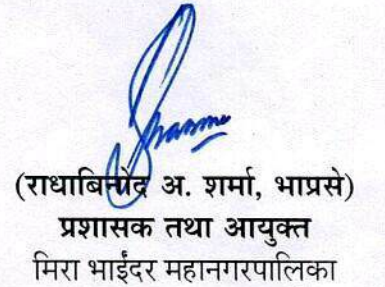 Sharma
(राधाबिनोद अ. शर्मा, भाप्रसे)
प्रशासक तथा आयुक्त
मिरा भाईंदर महानगरपालिका